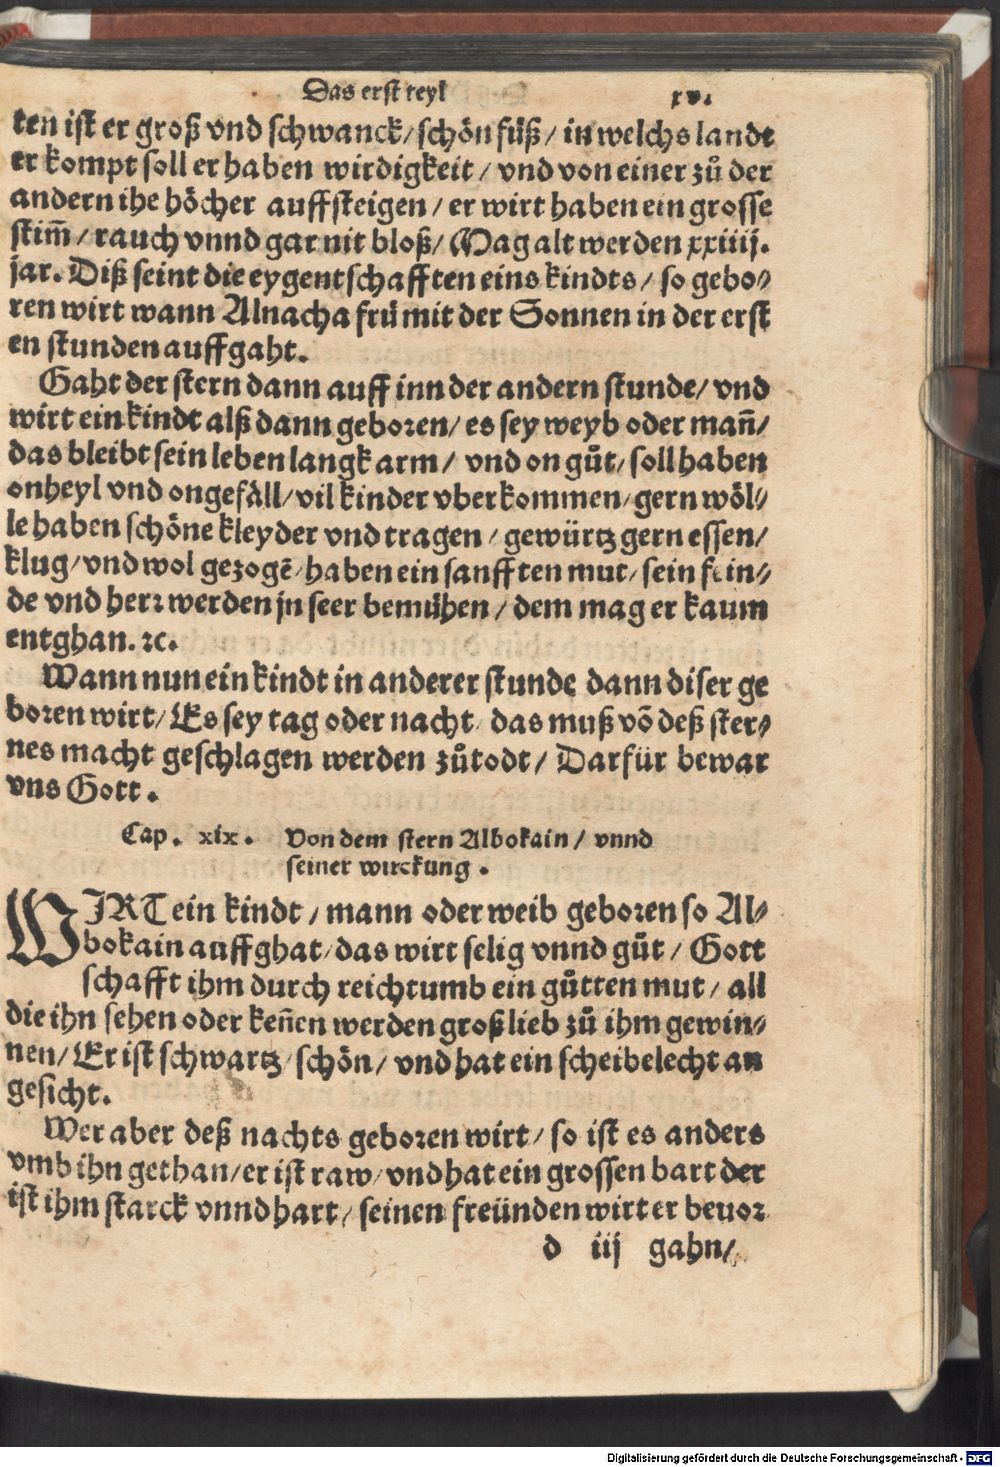 Das erst teyl xv.
ten ist er groß vnd schwanck/schön füß/in welchs landt
er kompt soll er haben wirdigkeit/vnd von einer zů der
andern ihe höcher auffsteigen/er wirt haben ein grosse
stim̃/rauch vnnd gar nit bloß/Mag alt werden xxiiij.
jar. Diß seint die eygentschafften eins kindts/so gebo⸗
ren wirt wann Alnacha frü mit der Sonnen in der erst
en stunden auffgaht.
Gaht der stern dann auff inn der andern stunde/vnd
wirt ein kindt alß dann geboren/es sey weyb oder man̄/
das bleibt sein leben langk arm/vnd on gůt/soll haben
onheyl vnd ongefäll/vil kinder vberkommen/gern wöl⸗
le haben schöne kleyder vnd tragen/gewürtz gern essen/
klug/vnd wol gezogē/haben ein sanfften mut/sein fein⸗
de vnd herr werden jn seer bemühen/dem mag er kaum
entghan. ꝛc.
Wann nun ein kindt in anderer stunde dann diser ge
boren wirt/Es sey tag oder nacht/das muß võ deß ster⸗
nes macht geschlagen werden zů todt/Darfür bewar
vns Gott.
Cap. xix. Von dem stern Albokain/vnnd
seiner wirckung.
WIRT ein kindt/mann oder weib geboren so Al⸗
bokain auffghat/das wirt selig vnnd gůt/Gott
schafft ihm durch reichtumb ein gůtten mut/all
die ihn sehen oder keñen werden groß lieb zů ihm gewin⸗
nen/Er ist schwartz/schön/vnd hat ein scheibelecht an
gesicht.
Wer aber deß nachts geboren wirt/so ist es anders
vmb ihn gethan/er ist raw/vnd hat ein grossen bart der
ist ihm starck vnnd hart/seinen freünden wirt er beuor
d iij gahn/
Digitalisierung gefördert durch die Deutsche Forschungsgemeinschaft - DFG